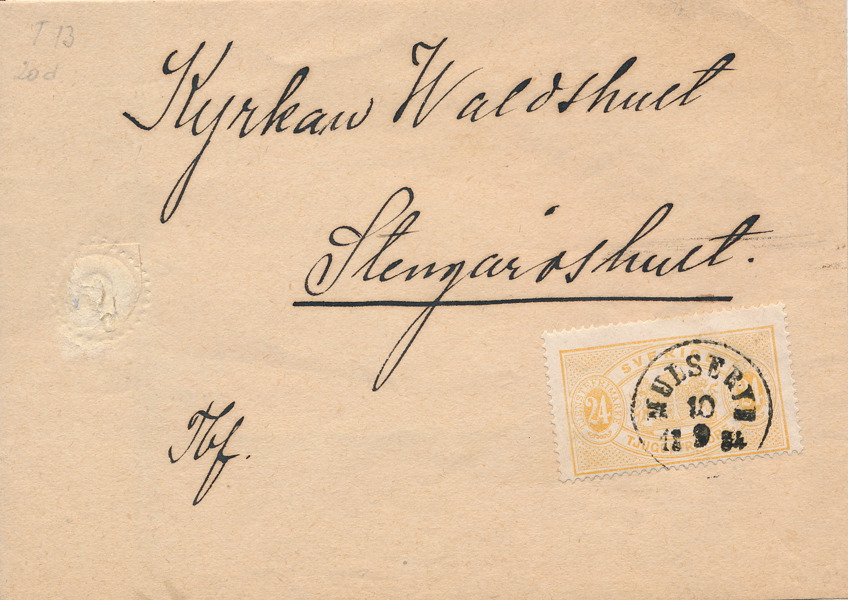 T 13
20d
Kyrkan Waldshult
Stengårdshult.
Tbf.
SVERIGE
24
TJUGO
MULSERYD
10
12 9 84